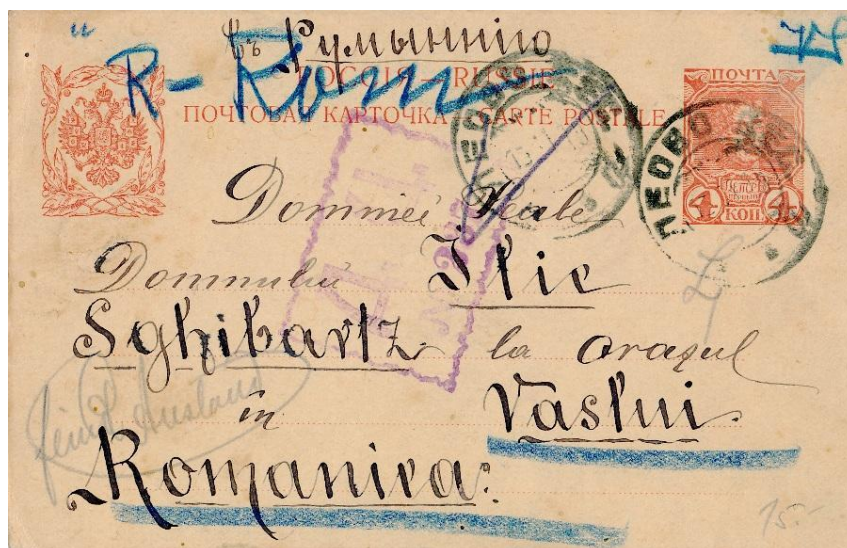 Въ Румынию
R- Rom
РОССІЯ - RUSSIE
ПОЧТОВАЯ КАРТОЧКА - CARTE POSTALE
ПОЧТА
4 КОП. 4
ЛЕОВО
ЛЕОВО
Domniei Sale
Domnului Ilie
Sghibartz la oraşul
Vaslui
în
Romaniea:
15.-